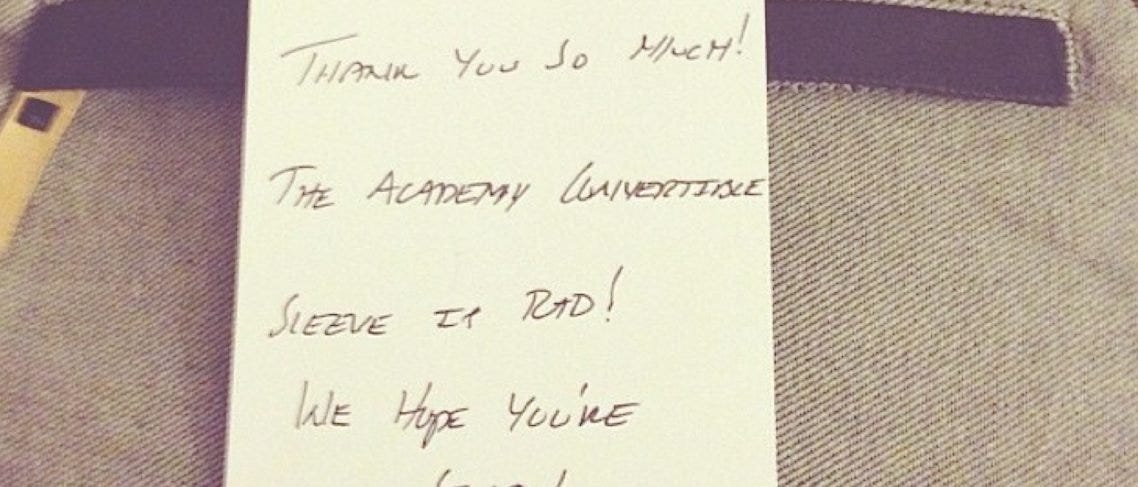 Thank You So Much!
The Academy Convertible
Sleeve is Rad!
We Hope You're